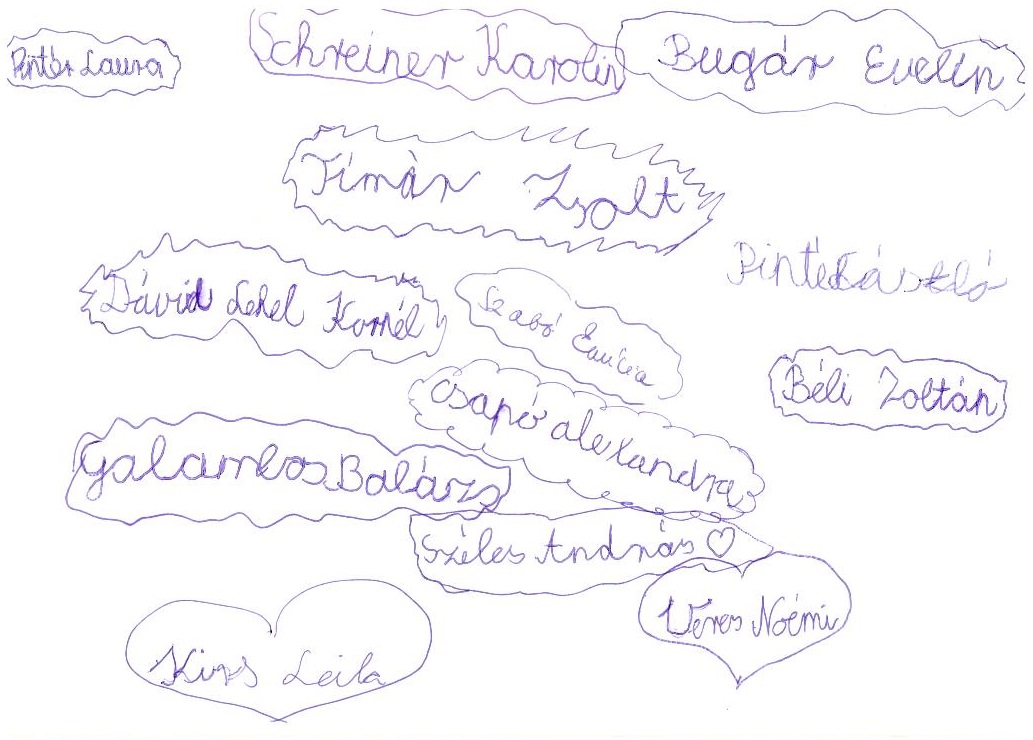 Pintér Laura
Schreiner Karolin
Bugár Evelin
Tímár Zsolt
Pintér László
Dávid Lehel Kornél
Szabó Enikő
Béli Zoltán
Csapó alexandra
Galambos Balázs
Széles András ♡
Veres Noémi
Kiss Leila